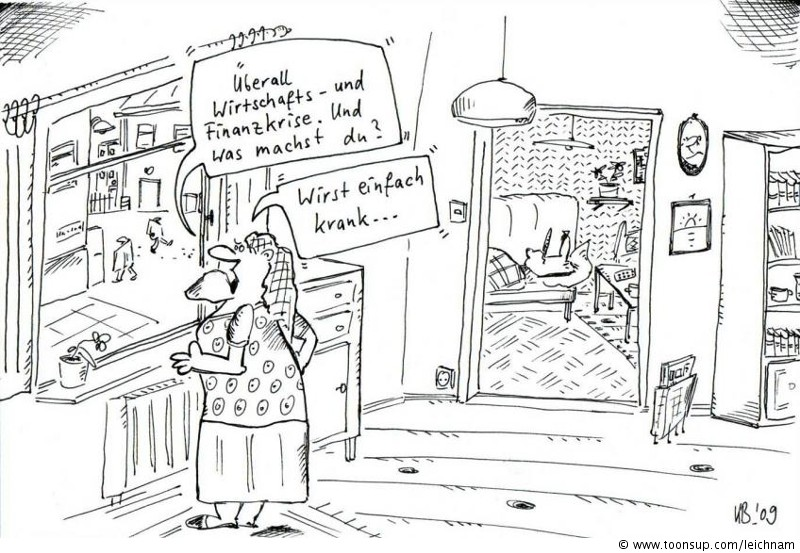 Überall
Wirtschafts- und
Finanzkrise. Und
was machst du?
Wirst einfach
krank...
HB.'09
© www.toonsup.com/leichnam